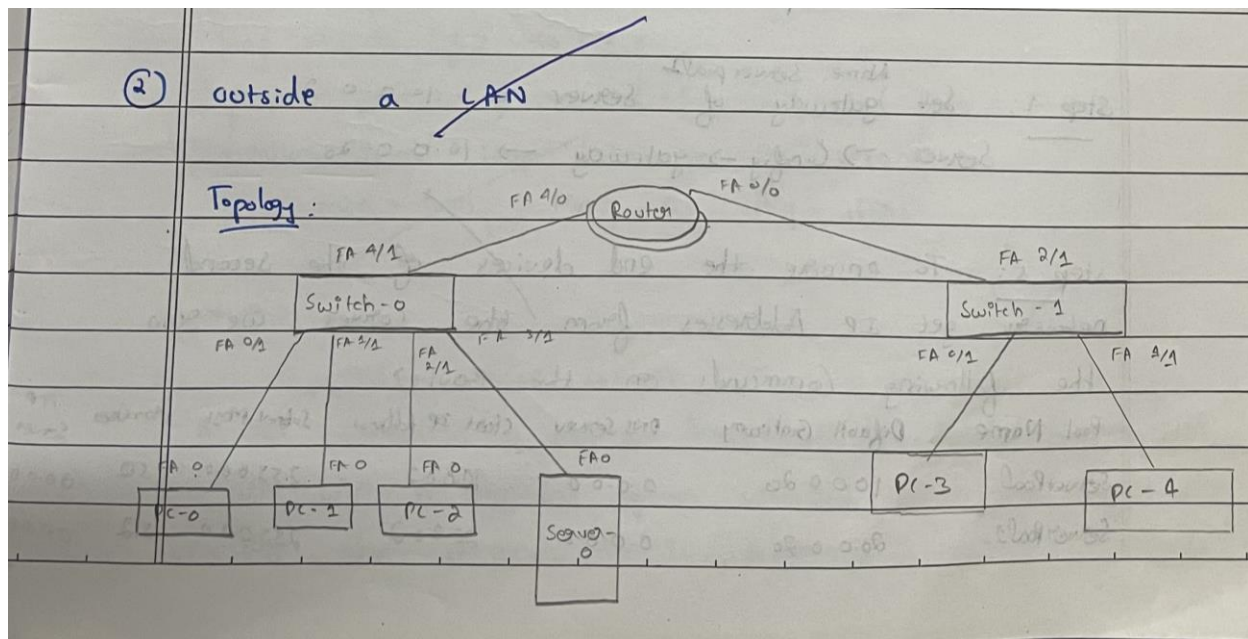 ② outside a LAN
Topology:
FA 4/0
Router
FA 0/0
FA 4/1
FA 2/1
Switch-0
Switch-1
FA 0/1
FA 1/1
FA 2/1
FA 3/1
FA 0/1
FA 1/1
FA 0
FA 0
FA 0
FA0
PC-0
PC-1
PC-2
Server-0
PC-3
PC-4